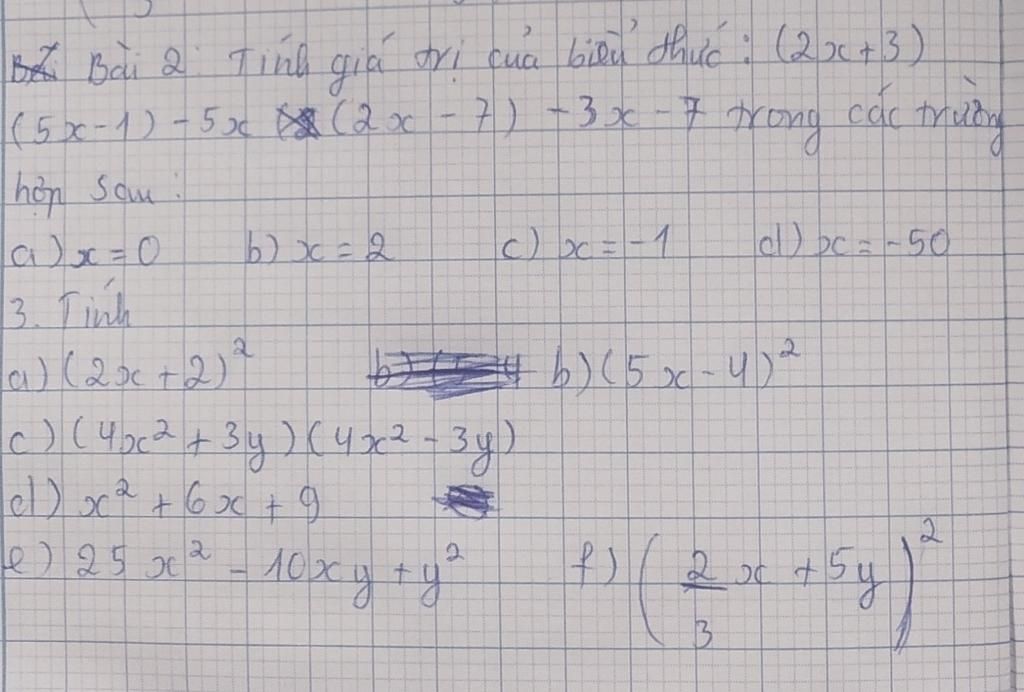 Bài 2: Tính giá trị của biểu thức: (2x+3)
(5x-1) - 5x (2x - 7) - 3x - 7 trong các trường
hợp sau:
a) x = 0 b) x = 2 c) x = -1 d) x = -50
3. Tính
a) (2x+2)² b) (5x-4)²
c) (4x² + 3y)(4x² - 3y)
d) x² + 6x + 9
e) 25x² - 10xy + y² f) (2/3 x + 5y)²